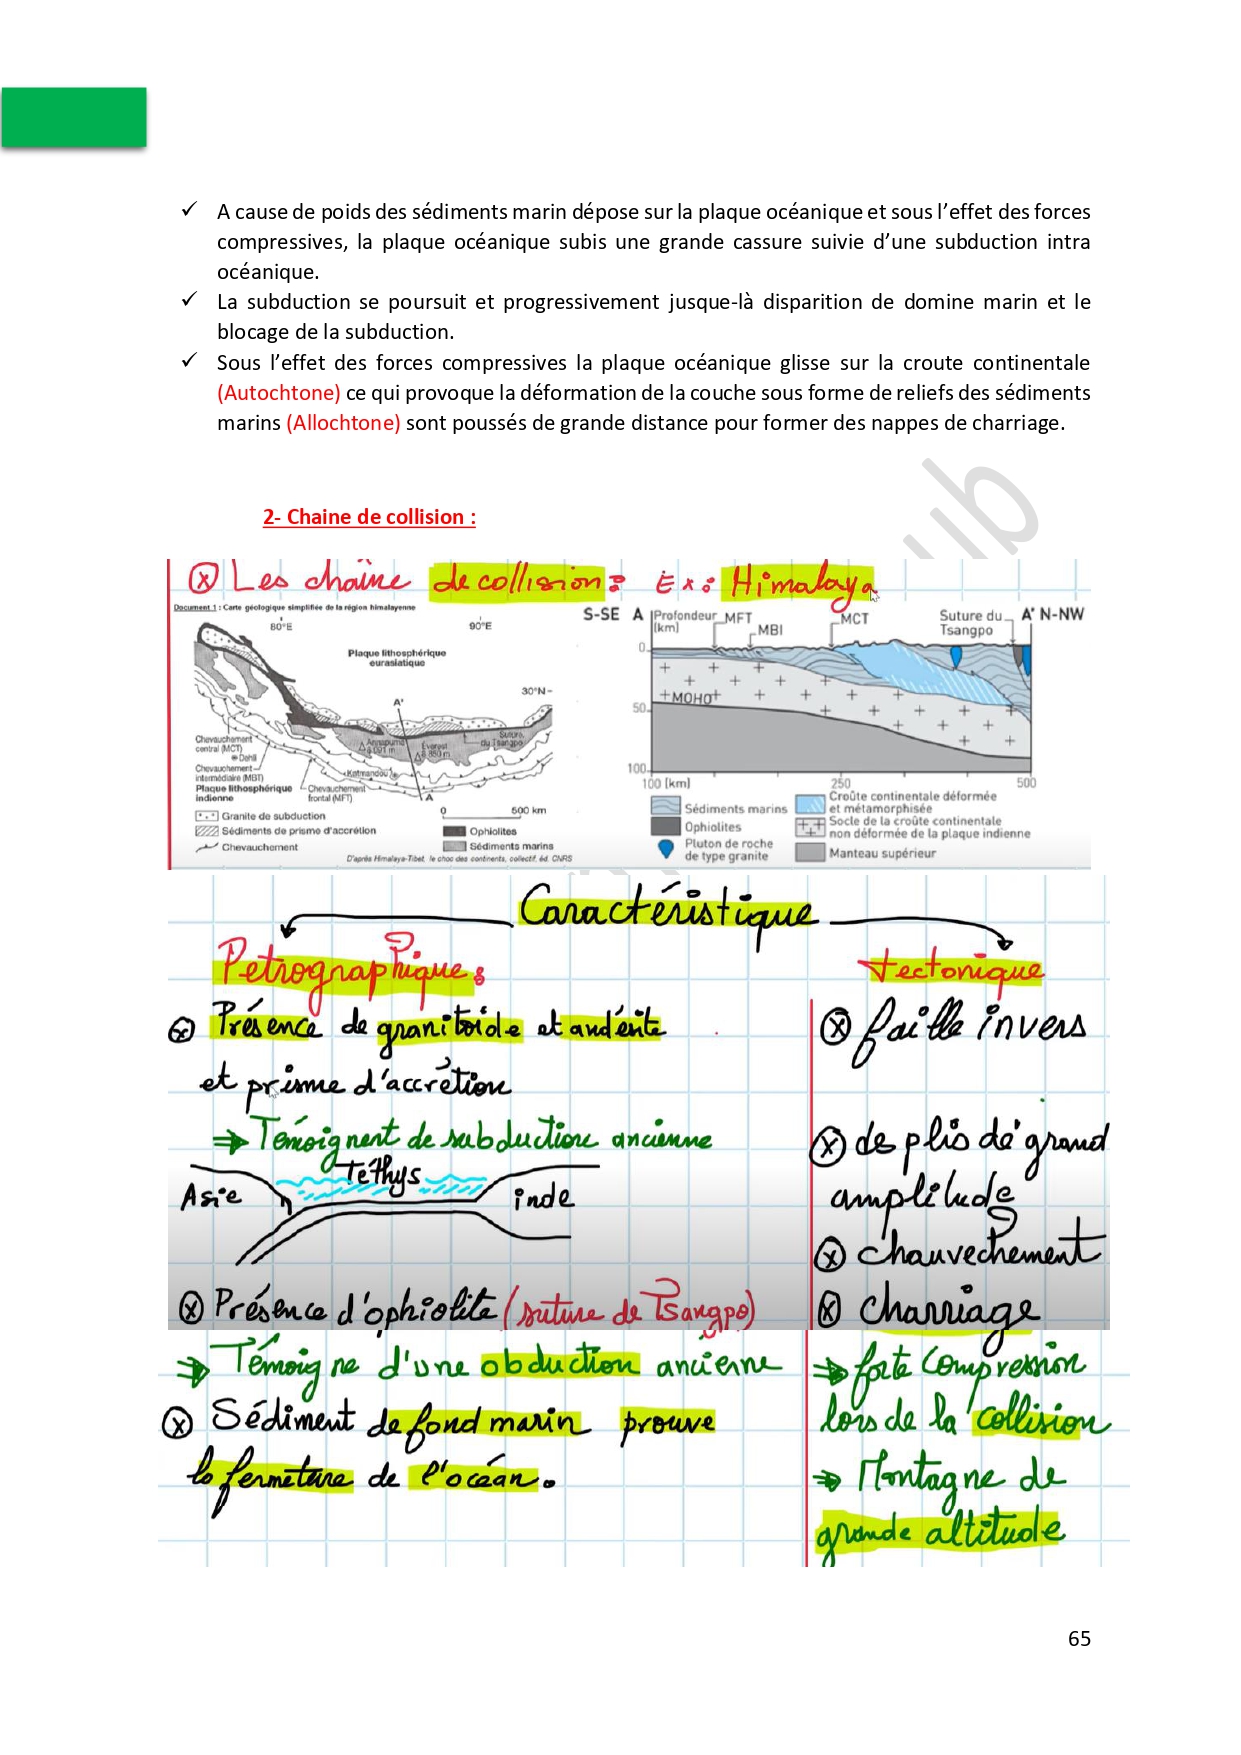 ✓ A cause de poids des sédiments marin dépose sur la plaque océanique et sous l'effet des forces
compressives, la plaque océanique subis une grande cassure suivie d'une subduction intra
océanique.
✓ La subduction se poursuit et progressivement jusque-là disparition de domine marin et le
blocage de la subduction.
✓ Sous l'effet des forces compressives la plaque océanique glisse sur la croute continentale
(Autochtone) ce qui provoque la déformation de la couche sous forme de reliefs des sédiments
marins (Allochtone) sont poussés de grande distance pour former des nappes de charriage.
2- Chaine de collision :
ⓧ Les chaîne de collision : Ex : Himalaya
Document 1 : Carte géologique simplifiée de la région himalayenne
80°E
90°E
Plaque lithosphérique
eurasiatique
30°N
A'
Chevauchement
central (MCT)
Dehli
Chevauchement
intermédiaire (MBT)
Plaque lithosphérique
indienne
Chevauchement
frontal (MFT)
Annapurna
8 091 m
Everest
8 850 m
Suture
du Tsangpo
Katmandou
A
0 500 km
Granite de subduction
Sédiments de prisme d'accrétion
Chevauchement
Ophiolites
Sédiments marins
D'après Himalaya-Tibet, le choc des continents, collectif, éd. CNRS
S-SE A Profondeur MFT MCT Suture du A' N-NW
(km) MBI Tsangpo
0
MOHO
50
100
100 (km) 250 500
Sédiments marins
Ophiolites
Pluton de roche
de type granite
Croûte continentale déformée
et métamorphisée
Socle de la croûte continentale
non déformée de la plaque indienne
Manteau supérieur
Caractéristique
Petrographique :
ⓧ Présence de granitoide et andésite
et prisme d'accrétion
⇒ Témoignent de subduction ancienne
Téthys
Asie inde
ⓧ Présence d'ophiolite (suture de Tsangpo)
⇒ Témoigne d'une obduction ancienne
ⓧ Sédiment de fond marin prouve
la fermeture de l'océan.
tectonique
ⓧ faille invers
ⓧ des plis de grand
amplitude
ⓧ chauvechement
ⓧ charriage
⇒ forte compression
lors de la collision
⇒ Montagne de
grande altitude
65